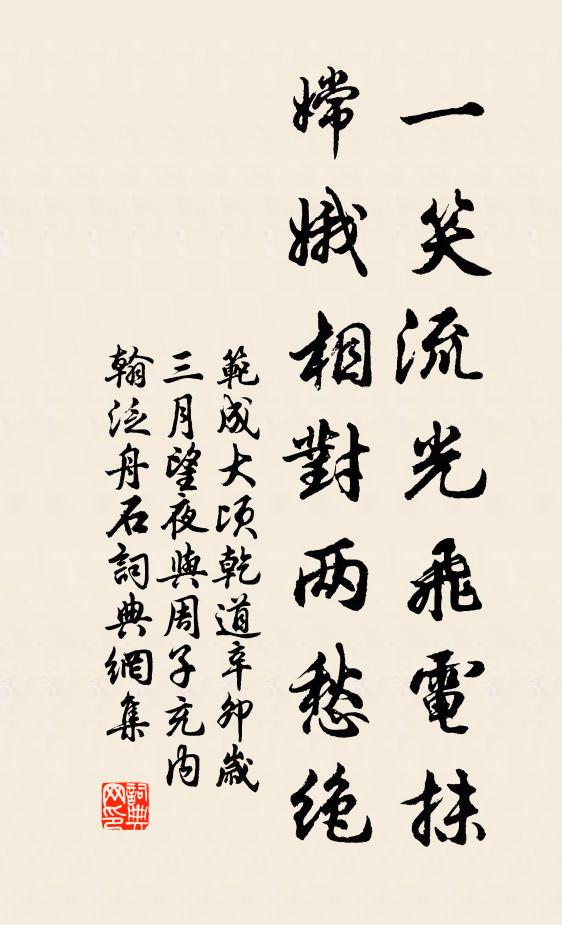 一笑流光飛電抹
嫦娥相對两愁绝
範成大頃乾道辛卯歲
三月望夜與周子充内
翰泛舟石詞典網集
詞典网印